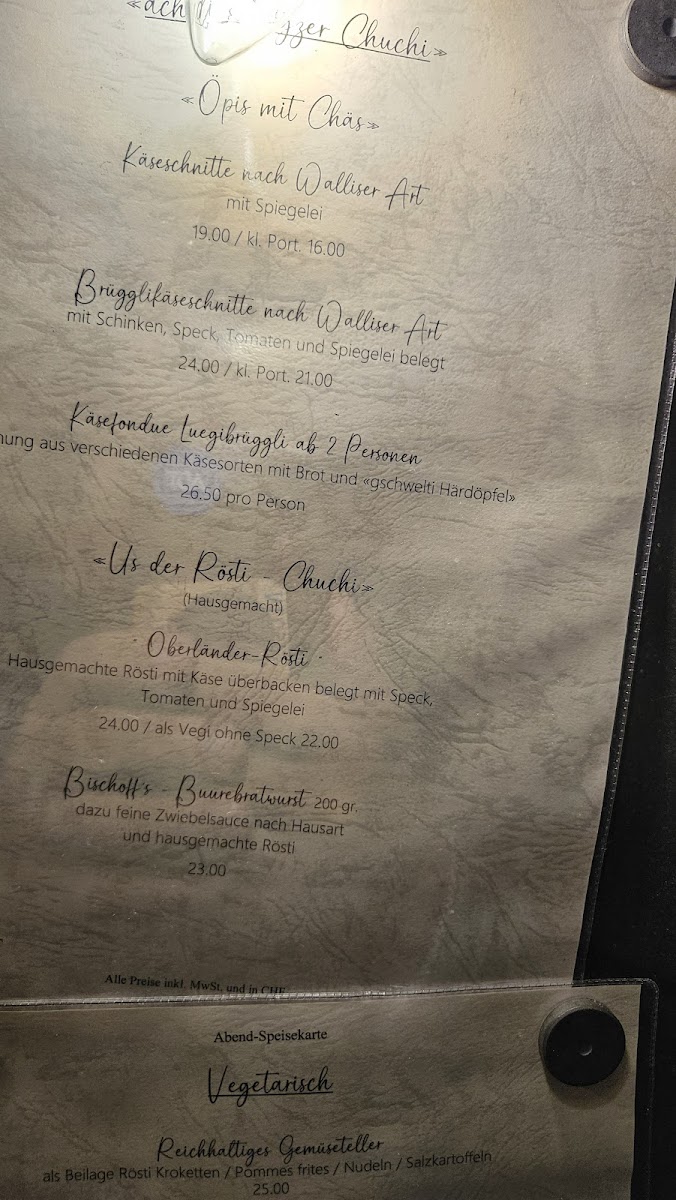 Chuchi»
«Öpis mit Chäs»
Käseschnitte nach Walliser Art
mit Spiegelei
19.00 / kl. Port. 16.00
Brügglikäseschnitte nach Walliser Art
mit Schinken, Speck, Tomaten und Spiegelei belegt
24.00 / kl. Port. 21.00
Käsefondue Luegibrüggli ab 2 Personen
aus verschiedenen Käsesorten mit Brot und «gschwelti Härdöpfel»
26.50 pro Person
«Us der Rösti - Chuchi»
(Hausgemacht)
Oberländer-Rösti
Hausgemachte Rösti mit Käse überbacken belegt mit Speck,
Tomaten und Spiegelei
24.00 / als Vegi ohne Speck 22.00
Bischoff's - Buurebratwurst 200 gr.
dazu feine Zwiebelsauce nach Hausart
und hausgemachte Rösti
23.00
Alle Preise inkl. MwSt. und in CHF
Abend-Speisekarte
Vegetarisch
Reichhaltiges Gemüseteller
als Beilage Rösti Kroketten / Pommes frites / Nudeln / Salzkartoffeln
25.00